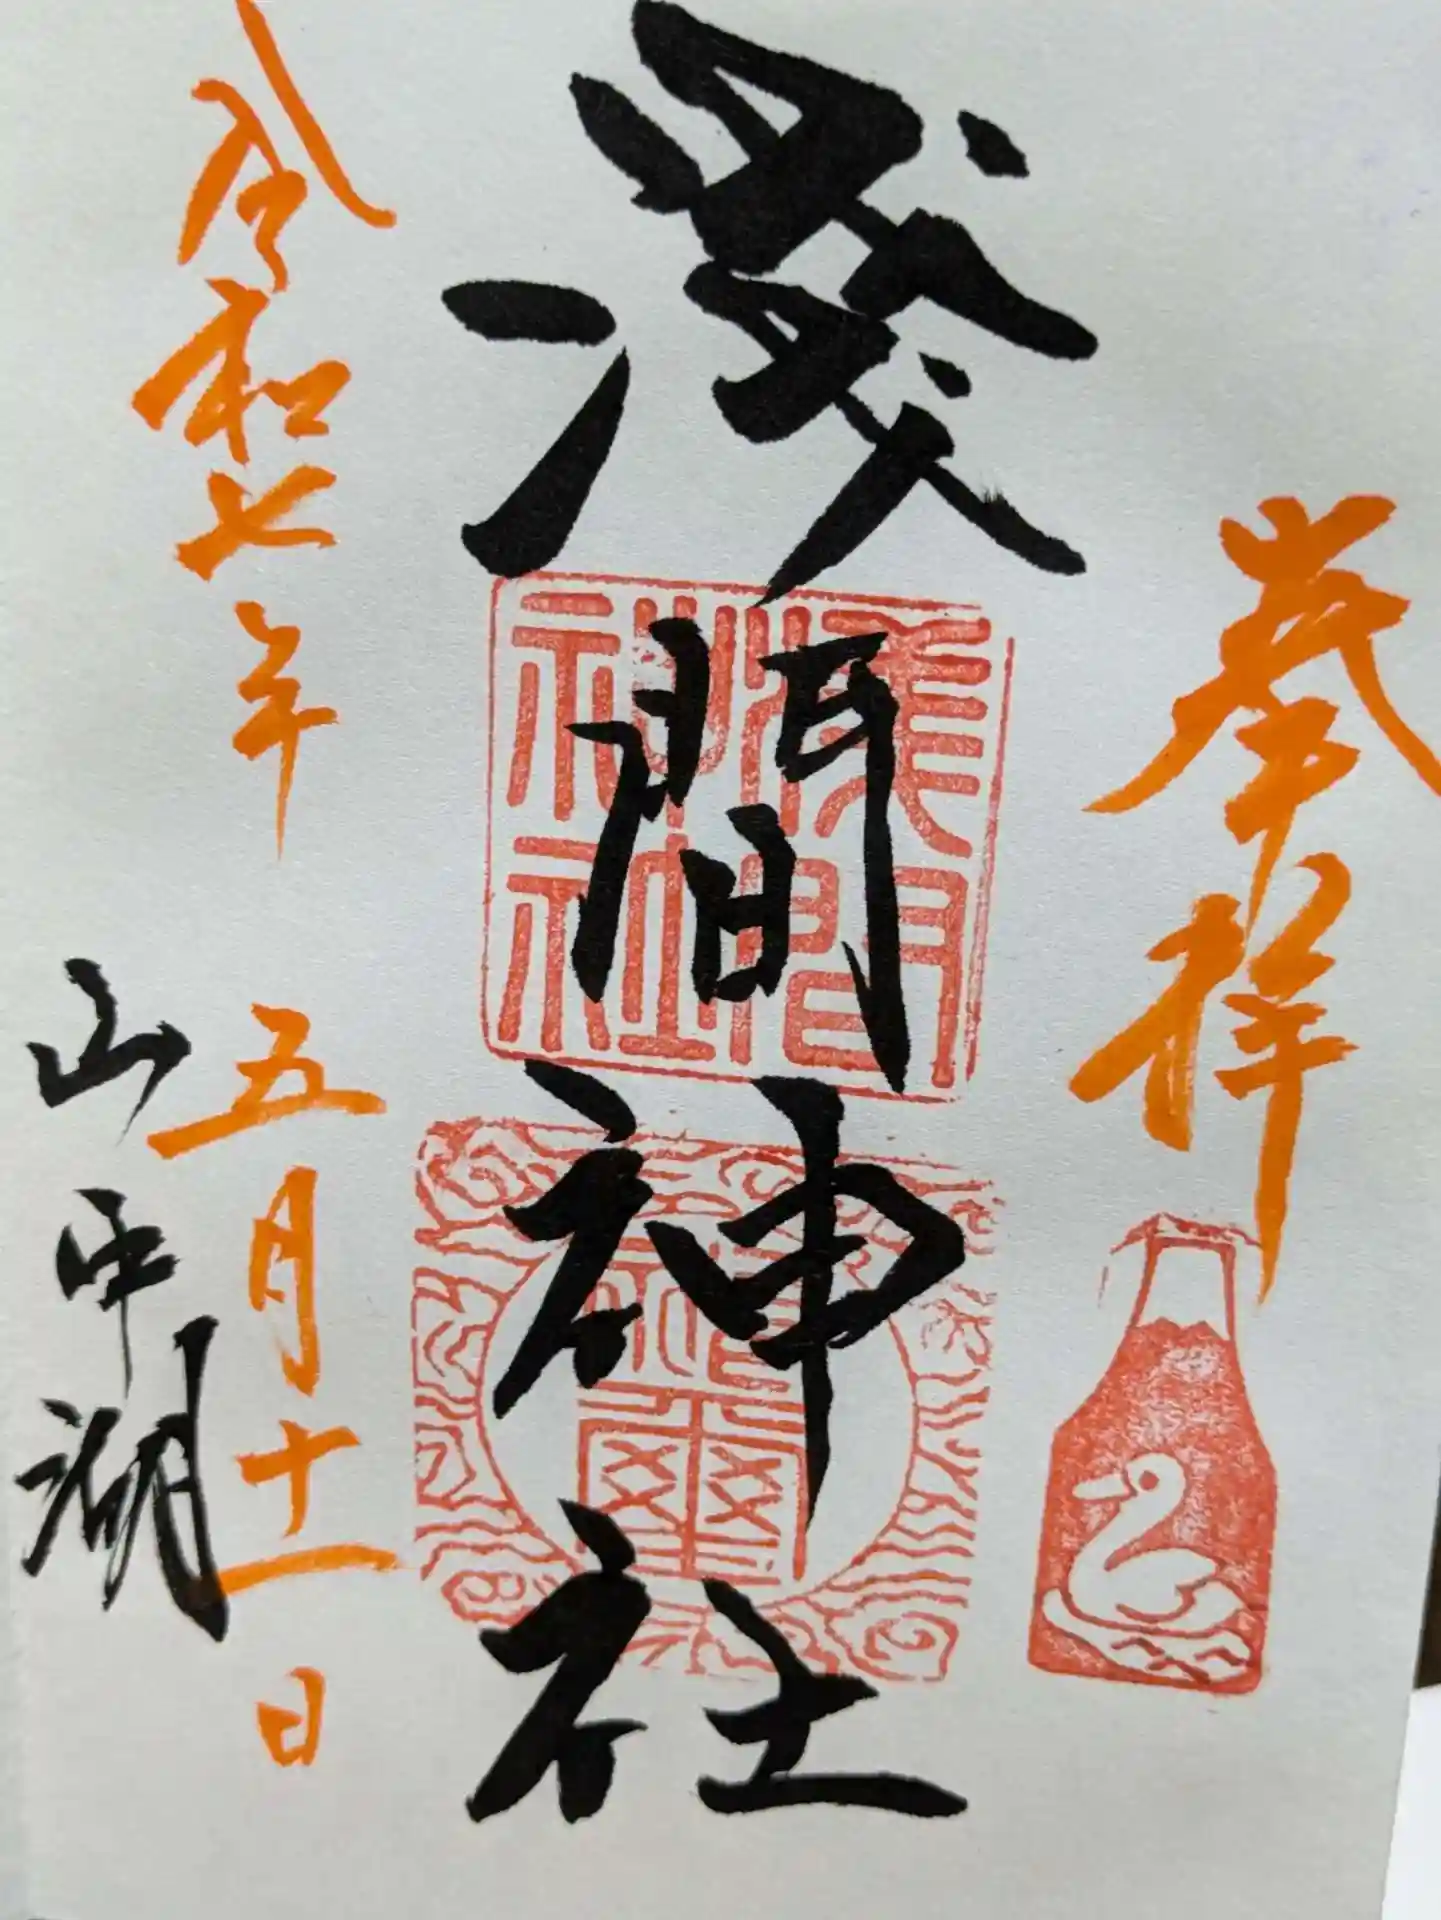 奉拝
淺間神社
淺間神社
令和七年 五月十一日
山中湖